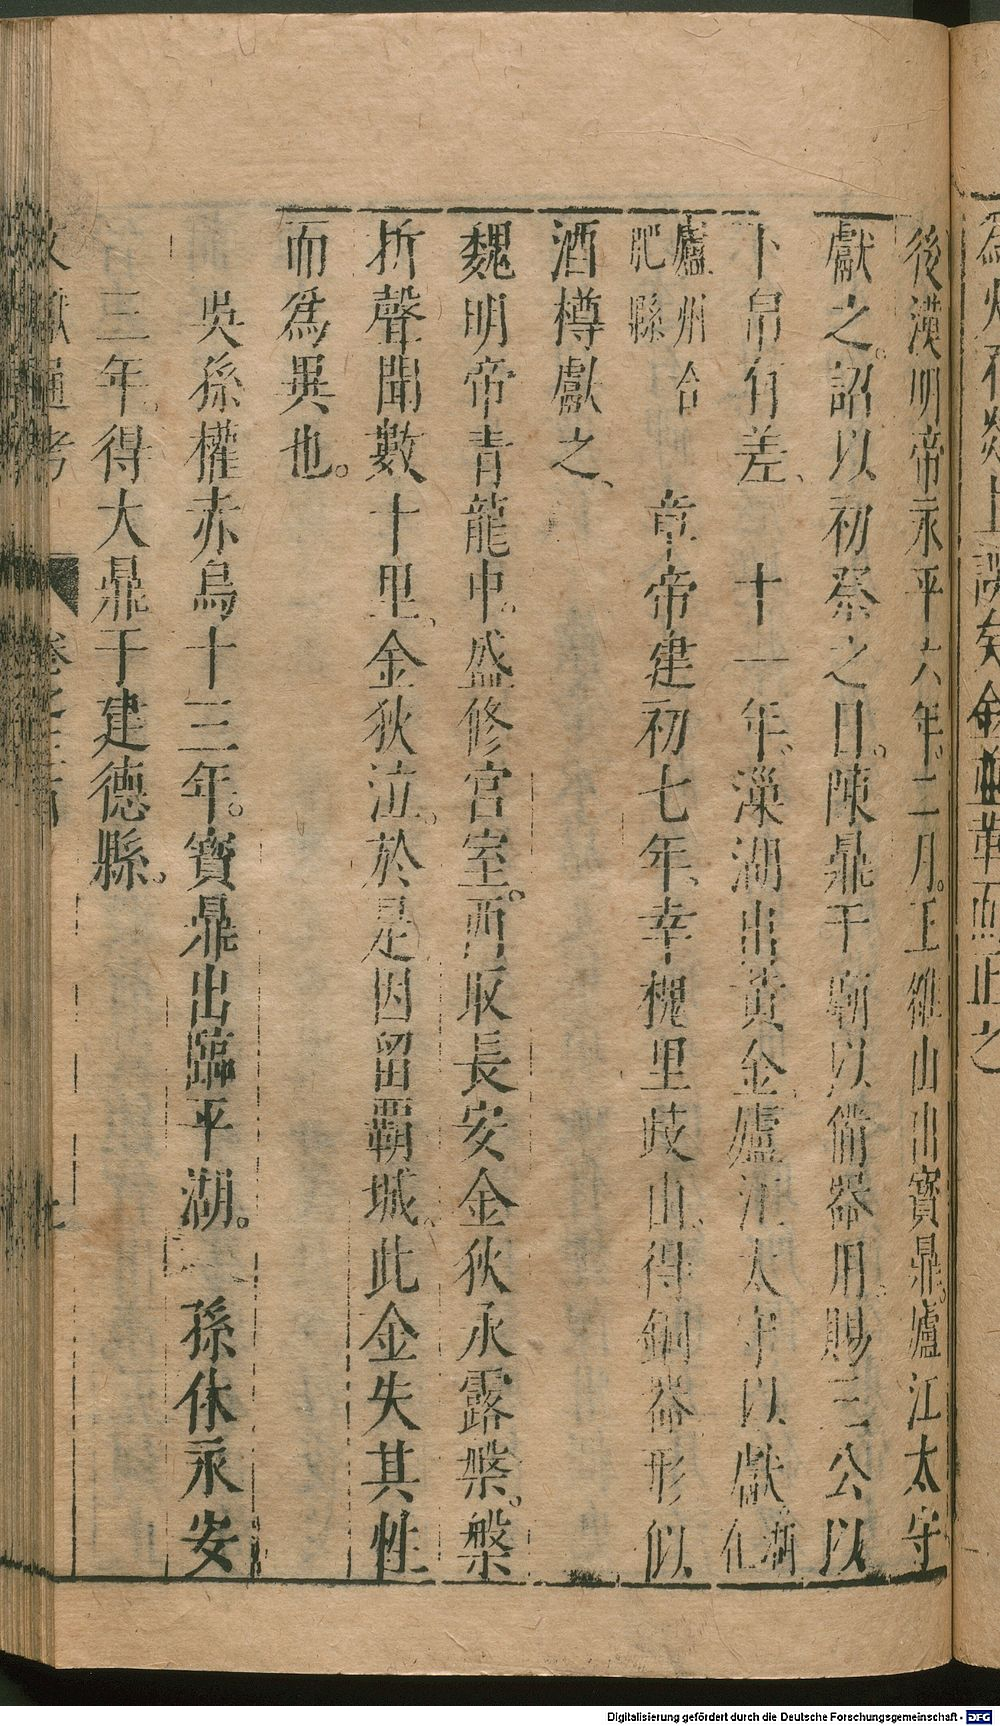 後漢明帝永平六年。二月。王雒山出寶鼎。廬江太守
獻之。詔以初祭之日。陳鼎于廟以備器用。賜三公以
下帛有差、　十一年、漅湖出黃金、廬江太守以獻湖在
廬州合肥縣　章帝建初七年、幸槐里岐山、得銅器形似
酒樽獻之、
魏明帝青龍中。盛修宮室。西取長安金狄承露槃。槃
折聲聞數十里、金狄泣。於是因留霸城。此金失其性
而爲異也。
吳孫權赤烏十三年。寶鼎出臨平湖。　孫休永安
三年、得大鼎于建德縣。
獻通考　卷之
Digitalisierung gefördert durch die Deutsche Forschungsgemeinschaft - DFG